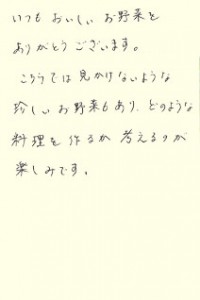 いつも おいしい お野菜を
ありがとうございます。
こちらでは見かけないような
珍しい お野菜もあり、どのような
料理を 作るか 考えるのが
楽しみです。